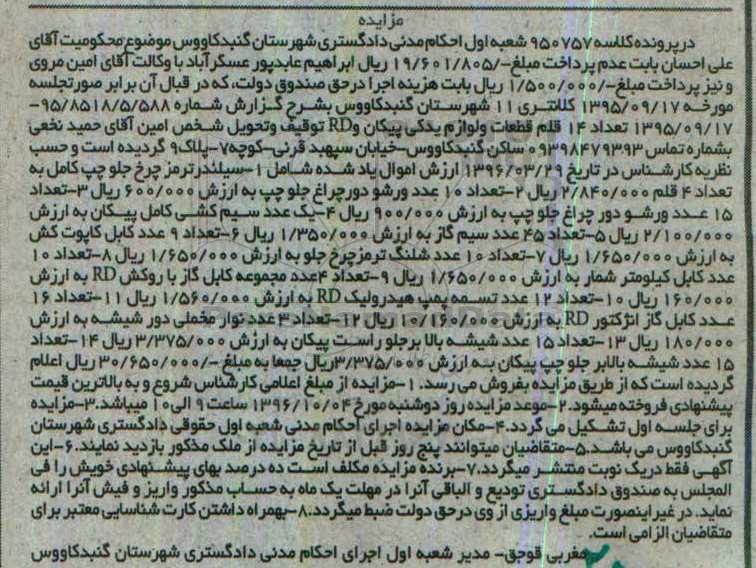 مزایده
در پرونده کلاسه ۹۵۰۷۵۷ شعبه اول احکام مدنی دادگستری شهرستان گنبدکاووس موضوع محکومیت آقای
علی احسان بابت عدم پرداخت مبلغ-/۱۹/۶۰۱/۸۰۵ ریال ابراهیم عابدپور عسکرآباد با وکالت آقای امین مروی
و نیز پرداخت مبلغ-/۱/۵۰۰/۰۰۰ ریال بابت هزینه اجرا درحق صندوق دولت، که در قبال آن برابر صورتجلسه
مورخه ۱۳۹۵/۰۹/۱۷ کلانتری ۱۱ شهرستان گنبدکاووس بشرح گزارش شماره ۹۵/۸۵۱۸/۵/۵۸۸-
۱۳۹۵/۰۹/۱۷ تعداد ۱۴ قلم قطعات ولوازم یدکی پیکان وRD توقیف وتحویل شخص امین آقای حمید نخعی
بشماره تماس ۰۹۳۹۸۴۷۹۳۹۳ ساکن گنبدکاووس-خیابان سپهبد قرنی-کوچه۷-پلاک۹ گردیده است و حسب
نظریه کارشناس در تاریخ ۱۳۹۶/۰۳/۲۹ ارزش اموال یاد شده شامل ۱-سیلندرترمز چرخ جلو چپ کامل به
تعداد ۴ قلم ۲/۸۴۰/۰۰۰ ریال ۲-تعداد ۱۰ عدد ورشو دورچراغ جلو چپ به ارزش ۶۰۰/۰۰۰ ریال ۳-تعداد
۱۵ عدد ورشو دور چراغ جلو چپ به ارزش ۹۰۰/۰۰۰ ریال ۴-یک عدد سیم کشی کامل پیکان به ارزش
۲/۱۰۰/۰۰۰ ریال ۵-تعداد ۴۵ عدد سیم گاز به ارزش ۱/۳۵۰/۰۰۰ ریال ۶-تعداد ۹ عدد کابل کاپوت کش
به ارزش ۱/۶۵۰/۰۰۰ ریال ۷-تعداد ۱۰ عدد شلنگ ترمزچرخ جلو به ارزش ۱/۶۵۰/۰۰۰ ریال ۸-تعداد ۱۰
عدد کابل کیلومتر شمار به ارزش ۱/۶۵۰/۰۰۰ ریال ۹-تعداد ۴عدد مجموعه کابل گاز با روکش RD به ارزش
۱۶۰/۰۰۰ ریال ۱۰-تعداد ۱۲ عدد تسمه پمپ هیدرولیک RD به ارزش ۱/۵۶۰/۰۰۰ ریال ۱۱-تعداد ۱۶
عدد کابل گاز انژکتور RD به ارزش ۱۰/۱۶۰/۰۰۰ ریال ۱۲-تعداد ۳ عدد نوار مخملی دور شیشه به ارزش
۱۸۰/۰۰۰ ریال ۱۳-تعداد ۱۵ عدد شیشه بالابرجلو راست پیکان به ارزش ۳/۳۷۵/۰۰۰ ریال ۱۴-تعداد
۱۵ عدد شیشه بالابر جلو چپ پیکان به ارزش ۳/۳۷۵/۰۰۰ریال جمعا به مبلغ -/۳۰/۶۵۰/۰۰۰ ریال اعلام
گردیده است که از طریق مزایده بفروش می رسد. ۱-مزایده از مبلغ اعلامی کارشناس شروع و به بالاترین قیمت
پیشنهادی فروخته میشود.۲-موعد مزایده روز دوشنبه مورخ ۱۳۹۶/۱۰/۰۴ ساعت ۹ الی۱۰ میباشد.۳-مزایده
برای جلسه اول تشکیل می گردد.۴-مکان مزایده اجرای احکام مدنی شعبه اول حقوقی دادگستری شهرستان
گنبدکاووس می باشد.۵-متقاضیان میتوانند پنج روز قبل از تاریخ مزایده از ملک مذکور بازدید نمایند.۶-این
آگهی فقط دریک نوبت منتشر میگردد.۷-برنده مزایده مکلف است ده درصد بهای پیشنهادی خویش را فی
المجلس به صندوق دادگستری تودیع و الباقی آنرا در مهلت یک ماه به حساب مذکور واریز و فیش آنرا ارائه
نماید. در غیر اینصورت مبلغ واریزی از وی درحق دولت ضبط میگردد.۸-بهمراه داشتن کارت شناسایی معتبر برای
متقاضیان الزامی است.
مغربی قوجق- مدیر شعبه اول اجرای احکام مدنی دادگستری شهرستان گنبدکاووس